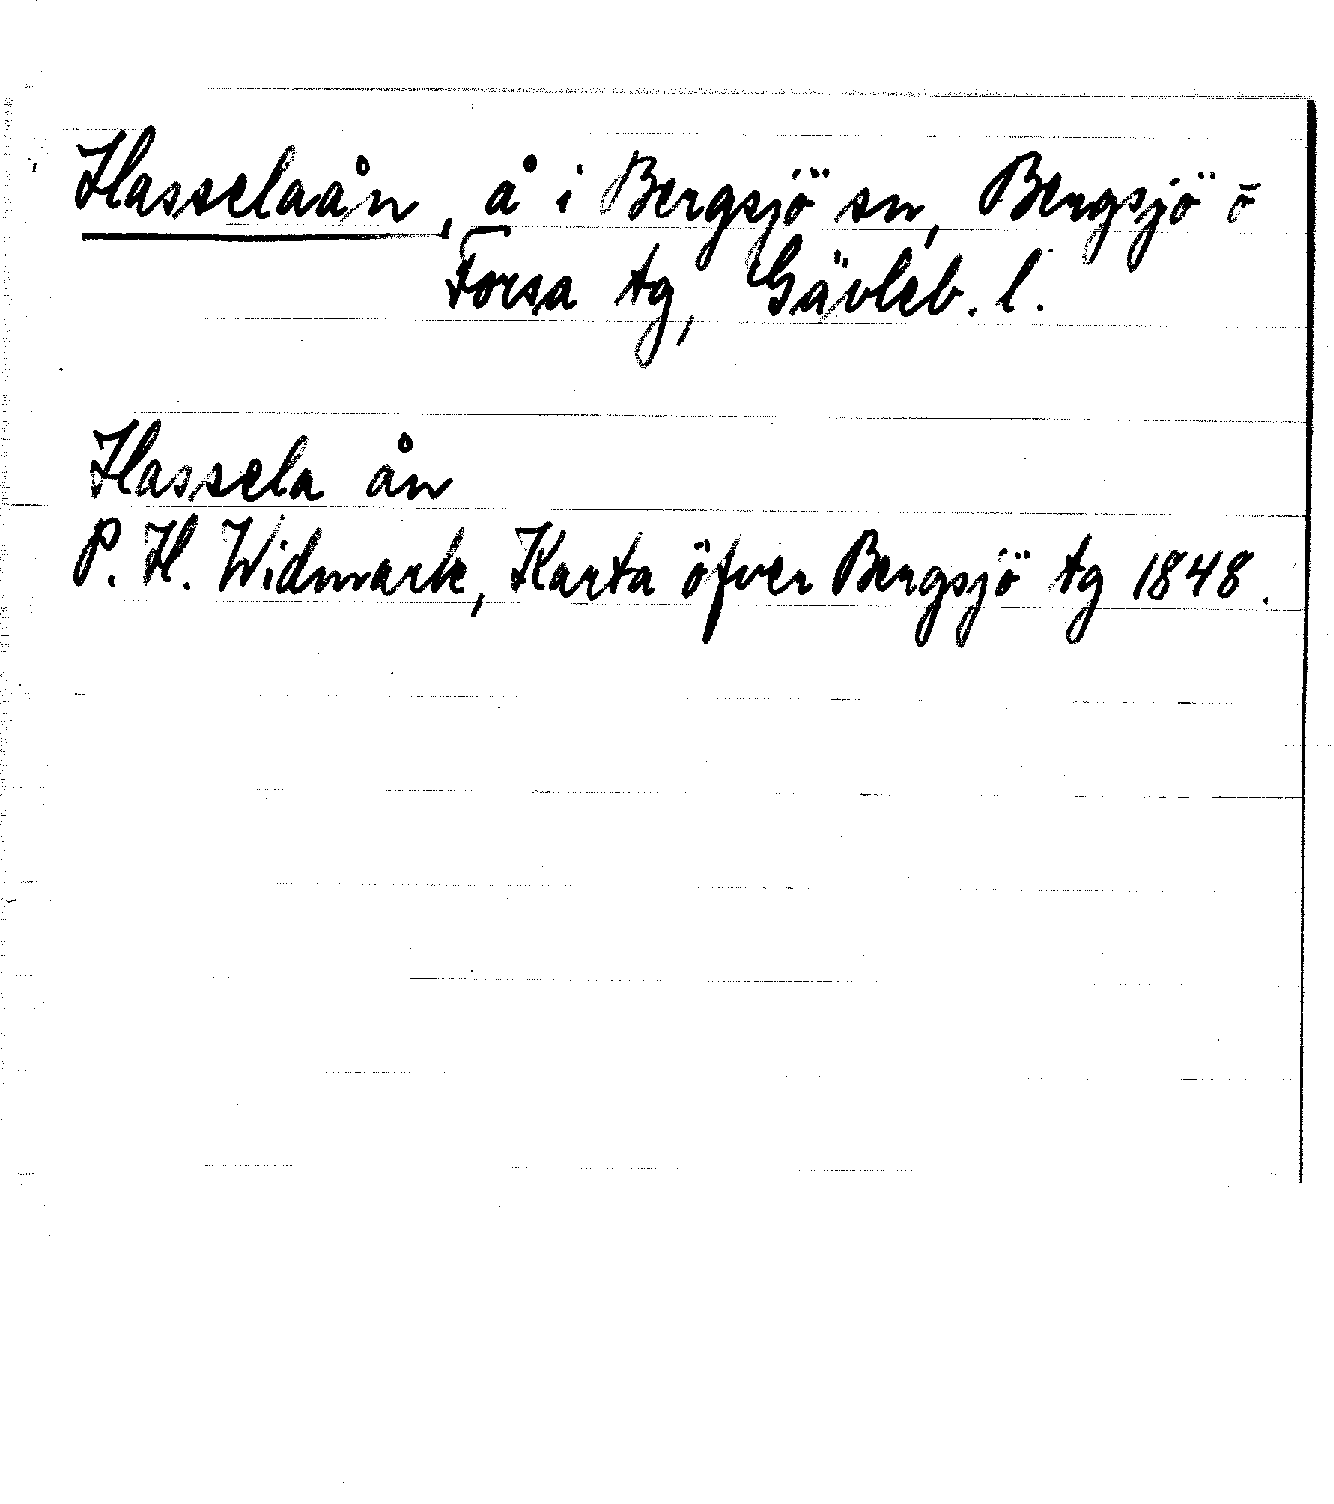 Hasselaån, å i Bergsjö sn, Bergsjö o
Forsa tg, Gävleb. l.
Hassela ån
P. H. Widmark, Karta öfver Bergsjö tg 1848.